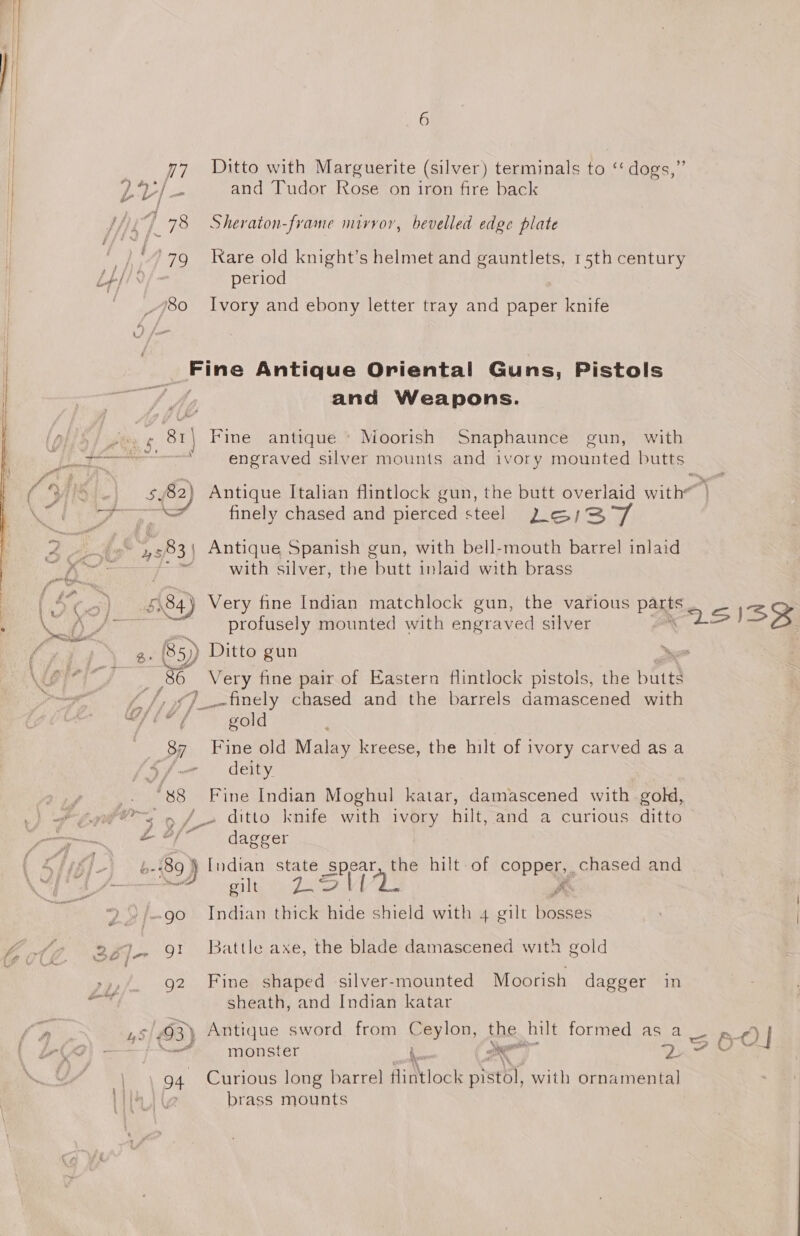 6
77 Ditto with Marguerite (silver) terminals to “dogs,”
and Tudor Rose on iron fire back
78 Sheraton-frame mirror, bevelled edge plate
79 Rare old knight's helmet and gauntlets, 15th century
period
80 Ivory and ebony letter tray and paper knife
Fine Antique Oriental Guns, Pistols
and Weapons.
81 Fine antique Moorish Snaphaunce gun, with
engraved silver mounts and ivory mounted butts
82 Antique Italian flintlock gun, the butt overlaid with
finely chased and pierced steel 25137
83 Antique Spanish gun, with bell-mouth barrel inlaid
with silver, the butt inlaid with brass
84 Very fine Indian matchlock gun, the various parts
profusely mounted with engraved silver 25138
85 Ditto gun
86 Very fine pair of Eastern flintlock pistols, the butts
finely chased and the barrels damascened with
gold
87 Fine old Malay kreese, the hilt of ivory carved as a
deity
88 Fine Indian Moghul katar, damascened with gold,
ditto knife with ivory hilt, and a curious ditto
dagger
89 Indian state spear, the hilt of copper, chased and
gilt
90 Indian thick hide shield with 4 gilt bosses
91 Battle axe, the blade damascened with gold
92 Fine shaped silver-mounted Moorish dagger in
sheath, and Indian katar
93 Antique sword from Ceylon, the hilt formed as a
monster
94 Curious long barrel flintlock pistol, with ornamental
brass mounts